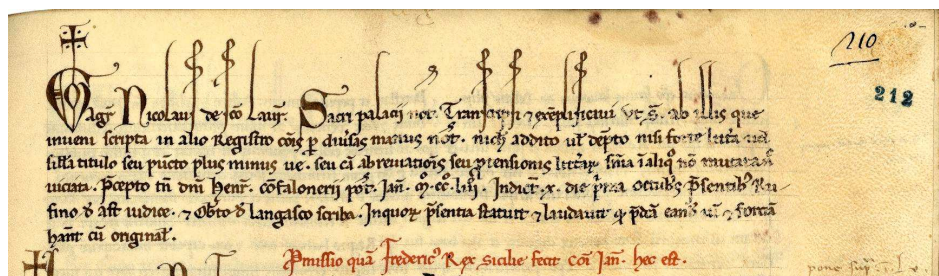 210
212
Magr̄ Nicolaus de sc̄o Laur̄. Sacri palacii not̄. Transcripsi ⁊ exēplificaui vt s̄. ab illis que
inueni scripta in alio Registro cōis p diuersas manus not̄. nichil addito uel dēpto nisi forte littera uel
sillaba titulo seu puncto plus minus ue. seu cā abreuiationis seu p̄tensionis litterar̄. sn̄ia in aliquo nō mutata n̄
uiciata. Precepto tn̄ dn̄i Henr̄. Cōfalonerii pot̄. Ian̄. M̊. CC̊. LIII̊. Indict̄. x. die prima octubris p̄sentibus Ru-
fino d̄ ast iudice. ⁊ Oberto d̄ langasco scriba. In quor̄ p̄sentia statuit ⁊ laudauit qd̄ p̄dcā eandē uim ⁊ forciā
habeant cū originali.
Pmissio quā Fredericus Rex Sicilie fecit cōi Ian̄. hec est.